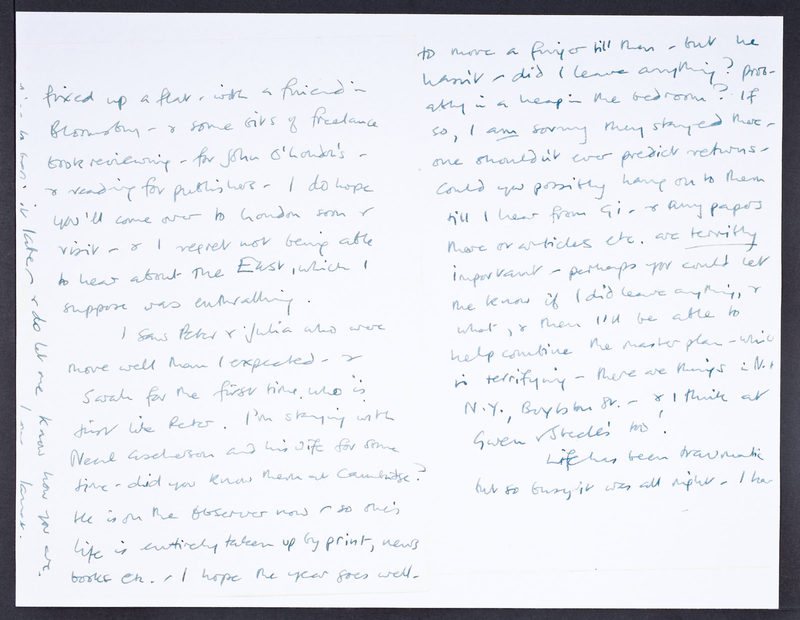 fixed up a flat - with a friend in
Bloomsbury - & some bits of freelance
book reviewing - for John O'London's -
& reading for publishers - I do hope
you'll come over to London soon &
visit - & I regret not being able
to hear about the East, which I
suppose was enthralling.
I saw Peter & Julia who were
more well than I expected - &
Sarah for the first time, who is
just like Peter. I'm staying with
Neal Ascherson and his wife for some
time - did you know them at Cambridge?
He is on the Observer now & so one's
life is entirely taken up by print, news
books etc. - I hope the year goes well -
it later & do let me know how you are.
to move a finger till then - but he
hasn't - did I leave anything? prob-
ably in a heap in the bedroom? If
so, I am sorry they stayed there -
one shouldn't ever predict returns -
Could you possibly hang on to them
till I hear from Gi - & any papers
there or articles etc. are terribly
important - perhaps you could let
me know if I did leave anything, &
what, & then I'll be able to
help combine the master plan - which
is terrifying - there are things in N.H
N.Y., Boylston St. - & I think at
Gwen & Steele's too!
Life has been traumatic
but so busy it was all right - I have